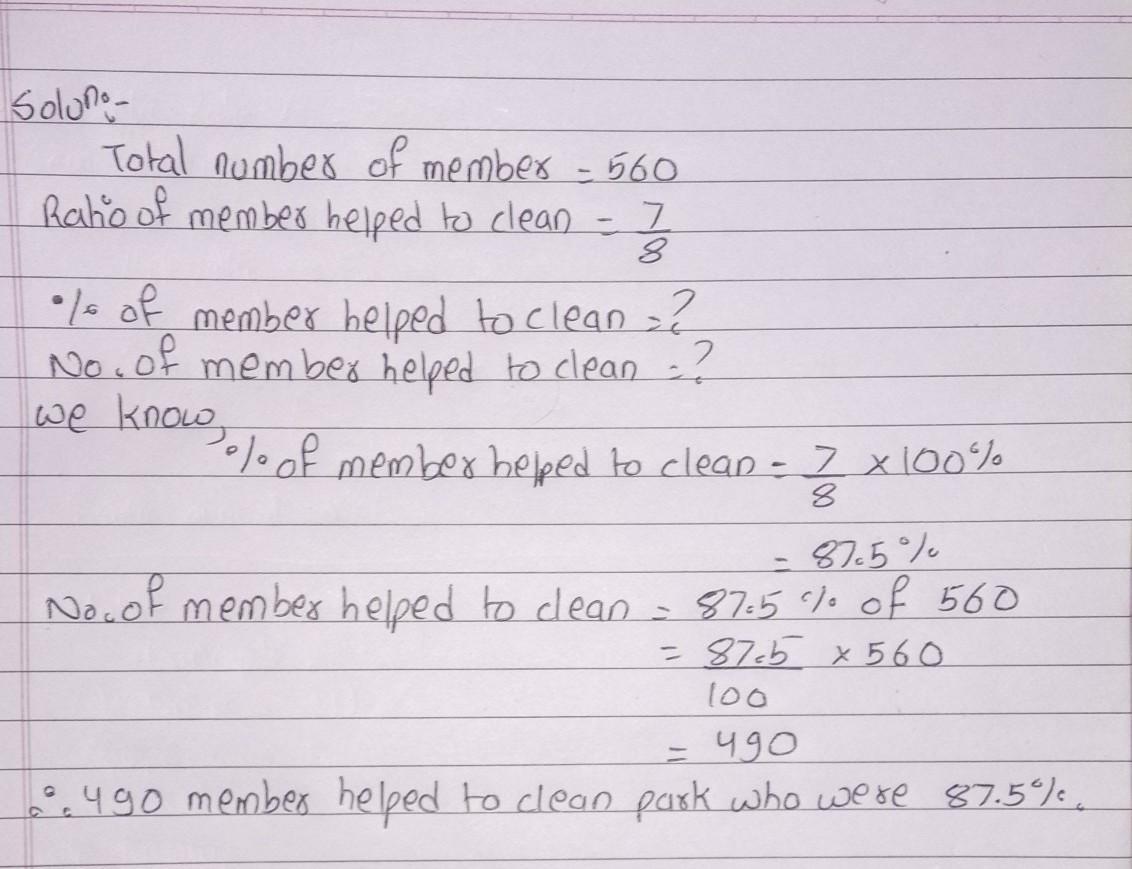 Soluno:-
Total number of member = 560
Ratio of member helped to clean = 7/8
% of member helped to clean = ?
No. of member helped to clean = ?
we know,
% of member helped to clean = 7/8 × 100%
= 87.5%
No. of member helped to clean = 87.5% of 560
= 87.5/100 × 560
= 490
∴ 490 member helped to clean park who were 87.5%.